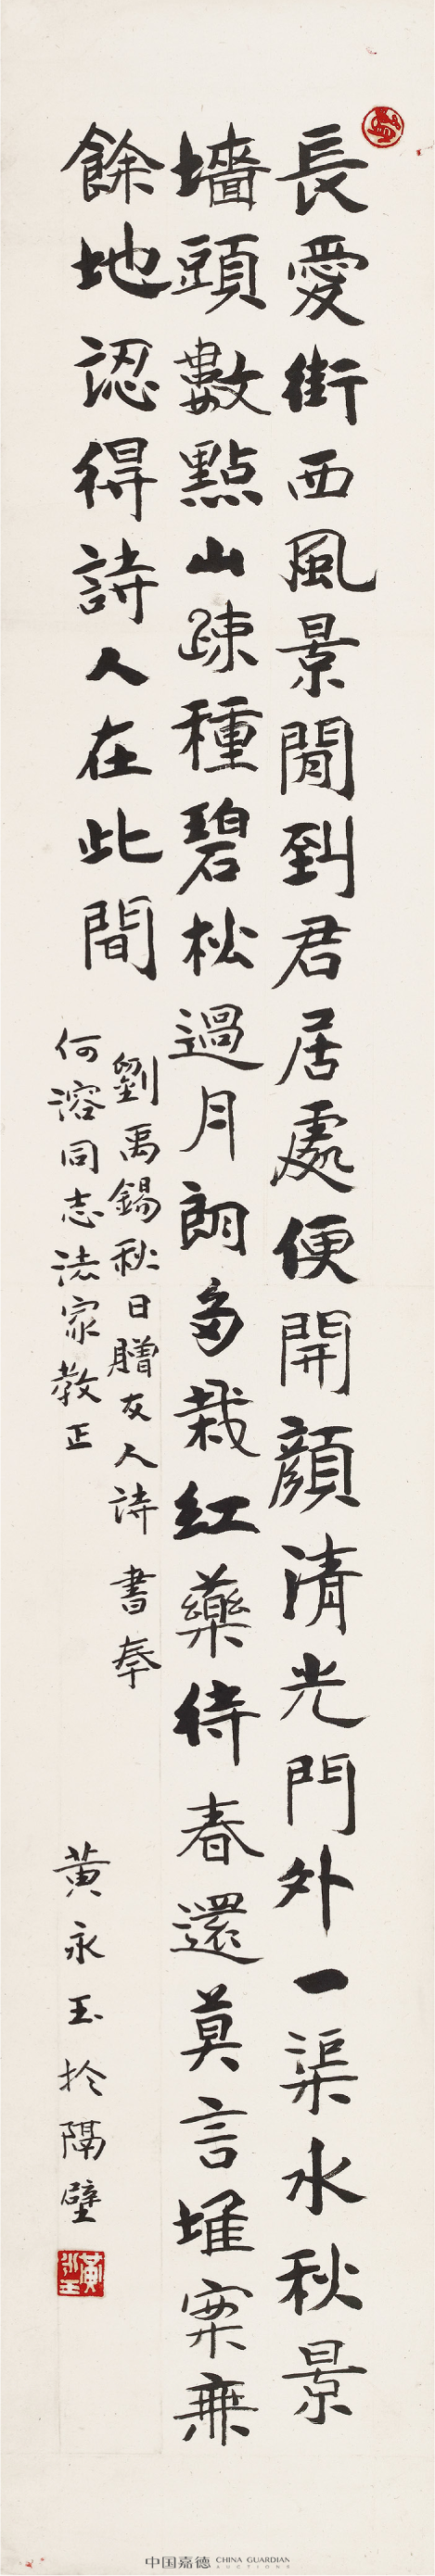 長愛街西風景閒到君居處便開顏清光門外一渠水秋景
墻頭數點山疎種碧松過月朗多栽紅藥待春還莫言堆案無
餘地認得詩人在此間
劉禹錫秋日贈友人詩 書奉
何溶同志法家教正
黃永玉於隔壁
黃永玉
中国嘉德 CHINA GUARDIAN
AUCTIONS